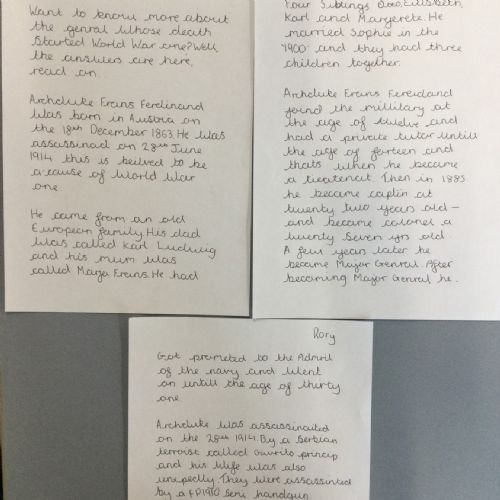 Want to know more about
the genral whose death
started World War one? Well
the answers are here,
read on.
Archduke Frans Ferdinand
was born in Austria on
the 18th December 1863. He was
assassinad on 28th June
1914 this is beilved to be
a cause of World War
one.
He came from an old
European family. His dad
was called Karl Ludwig
and his mum was
called Marja Frans. He had
four Siblings Otto, Elisabeth,
Karl and Margerete. He
married Sophie in the
1900 and they had three
children together.
Archduke Frans Fereidand
joind the millitary at
the age of twelve and
had a private tutor untill
the age of forteen and
thats when he became
a lieatenat. Then in 1885
he became captin at
twenty two years old -
and became colonel a
twenty seven yrs old.
A few years later he
became Major Genral. After
becoming Major Genral he.
Rory
Got prometed to the Admril
of the navy and went
on untill the age of thirty
one
Archduke was assassinated
on the 28th 1914. By a Serbian
terroise called Gavrilo princip
and his wife was also
unexpelly. They were assassinted
by a FP1910 semi handgun